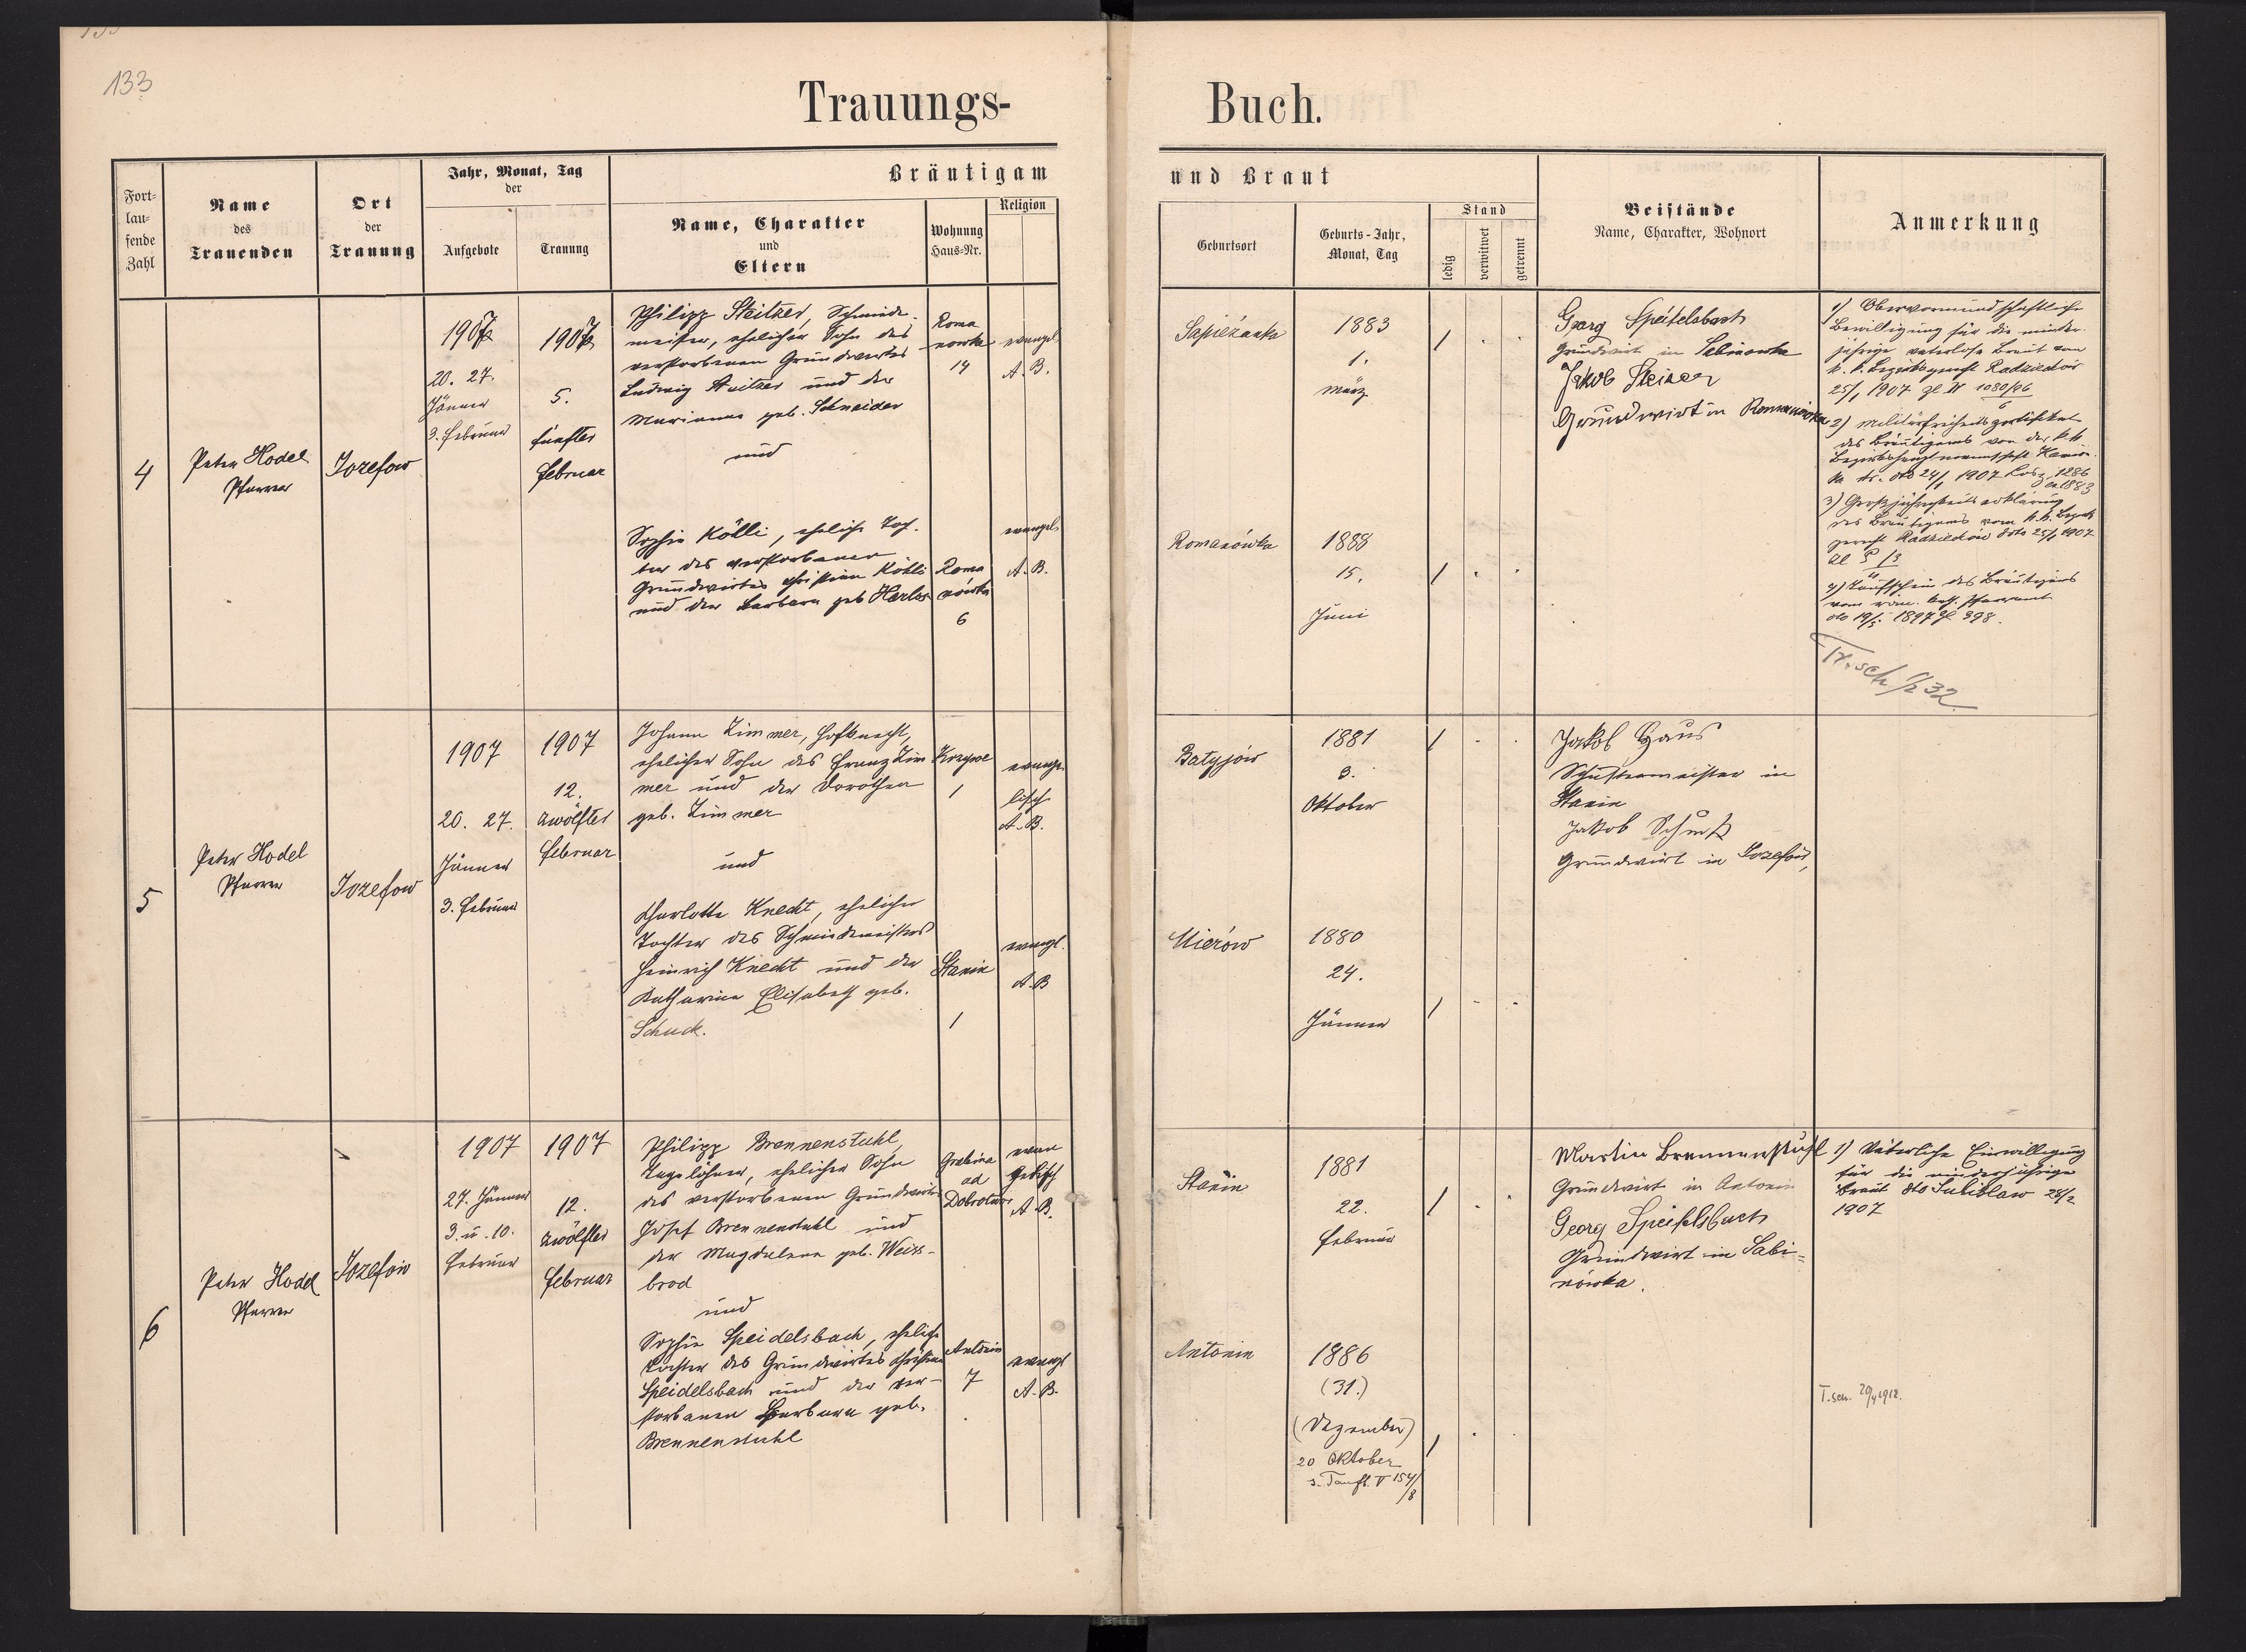 133
Trauungs-
Buch.
Fort-
lau-
fende
Zahl
Name
des
Trauenden
Ort
der
Trauung
Jahr, Monat, Tag
der
Aufgebote
Trauung
Bräutigam
Name, Charakter
und
Eltern
Wohnung
Haus-Nr.
Religion
und Braut
Geburtsort
Geburts-Jahr,
Monat, Tag
Stand
ledig
verwitwet
getrennt
Beistände
Name, Charakter, Wohnort
Anmerkung
4
Peter Hodel
Pfarrer
Jozefow
1907
20. 27.
Jänner
3. Februar
1907
5.
fünfter
Februar
Philipp Steitzer, Schmiede-
meister, ehelicher Sohn des
verstorbenen Grundwirtes
Ludwig Steitzer und der
Marianna geb. Schneider
und
Sophie Kölli, eheliche Toch-
ter des verstorbenen
Grundwirtes Christian Kölli
und der Barbara geb
Roma
nowka
14
evangel
A. B.
Roma
nówka
6
evangel
A. B.
Sapieżanka
1883
1.
März
Romanówka
1888
15.
Juni
Georg Speitelsbach
Grundwirt in Sabinowka
Jakob
Grundwirt in Romanówka
1) Obervormundschaftliche
Bewilligung für die minder-
jährige vaterlose Braut vom
k. k. Bezirksgericht Radziechów
25/1 1907
2) Militärfreiheitszertifikat
des Bräutigams von der k. k.
Bezirkshauptmannschaft
24/1 1907 1286
1883
3) Großjährigkeitserklärung
des Bräutigams vom k. k. Bezirks
gericht Radziechów dto 25/1 1907
4) Taufschein des Bräutigams
vom röm. kath. Pfarramt
dto 19/5 1897 398.
Tr. sch. 1/2 32
5
Peter Hodel
Pfarrer
Jozefow
1907
20. 27.
Jänner
3. Februar
1907
12.
zwölfter
Februar
Johann Zimmer, Hofknecht,
ehelicher Sohn des Franz Zim
mer und der Dorothea
geb. Zimmer
und
Charlotte Knecht, eheliche
Tochter des Schmiedmeisters
Heinrich Knecht und der
Katharina Elisabeth geb.
Schuck.
Krzywe
1
evange
lisch
A. B.
Stanin
1
evangl.
A. B
Batyjów
1881
3.
Oktober
Mierów
1880
24.
Jänner
Jakob Haus
Schustermeister in
Stanin
Jakob
Grundwirt in Jozefów,
6
Peter Hodel
Pfarrer
Jozefow
1907
27. Jänner
3. u. 10.
Februar
1907
12.
zwölfter
Februar
Philipp Brennenstuhl,
Tagelöhner, ehelicher Sohn
des verstorbenen Grundwirtes
Josef Brennenstuhl und
der Magdalena geb. Weiss-
brod
und
Sophie Speidelsbach, eheliche
Tochter des Grundwirtes Christian
Speidelsbach und der ver-
storbenen Barbara geb.
Brennenstuhl
Grabina
ad
Dobrotwor
evan
gelisch
A. B.
Antonin
7
evangl
A. B.
Stanin
1881
22.
Februar
Antonin
1886
(31.)
(Dezember)
20 Oktober
s. Taufb. V 154/8
Martin Brennenstuhl
Grundwirt in Antonin
Georg Speitelsbach
Grundwirt in Sabi-
nówka.
1) Väterliche Einwilligung
für die minderjährige
Braut dto 28/2
1907
T. sch. 20/4 1912.